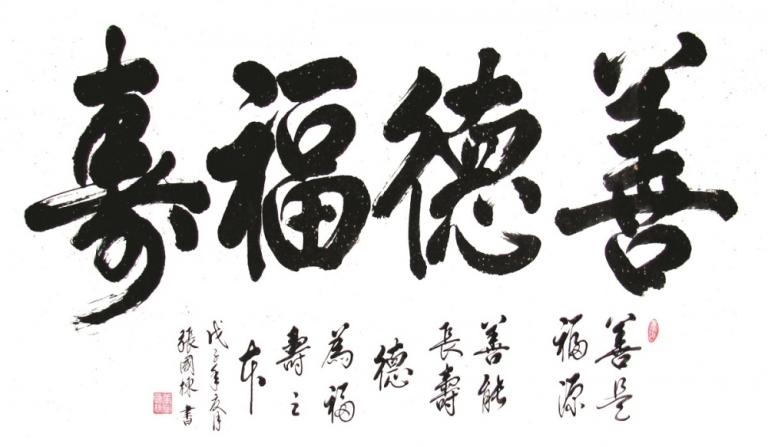 善德福壽
善是
福源
善能
長壽
德
為福
壽之
本
戊子年夏月
張國棟書